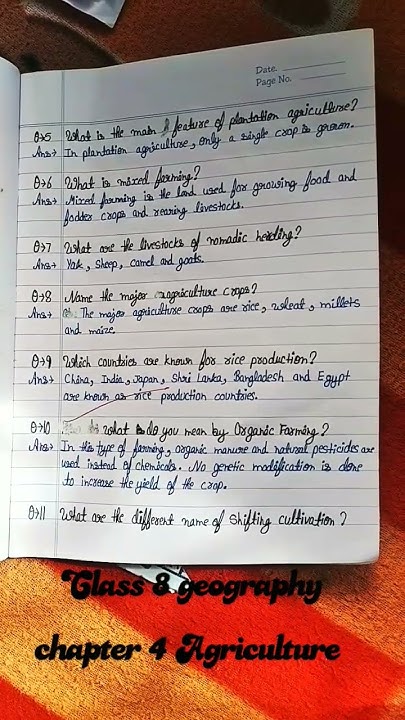 Date.
Page No.
Q→5 What is the main feature of plantation agriculture?
Ans→ In plantation agriculture, only a single crop is grown.
Q→6 What is mixed farming?
Ans→ Mixed farming is the land used for growing food and
fodder crops and rearing livestocks.
Q→7 What are the livestocks of nomadic herding?
Ans→ Yak, Sheep, Camel and goats.
Q→8 Name the major agriculture crops?
Ans→ The major agriculture crops are rice, wheat, millets
and maize.
Q→9 Which countries are known for rice production?
Ans→ China, India, Japan, Shri Lanka, Bangladesh and Egypt
are known as rice production countries.
Q→10 what is do you mean by Organic Farming?
Ans→ In this type of farming, organic manure and natural pesticides are
used instead of chemicals. No genetic modification is done
to increase the yield of the crop.
Q→11 What are the different name of shifting cultivation?
Class 8 geography
chapter 4 Agriculture